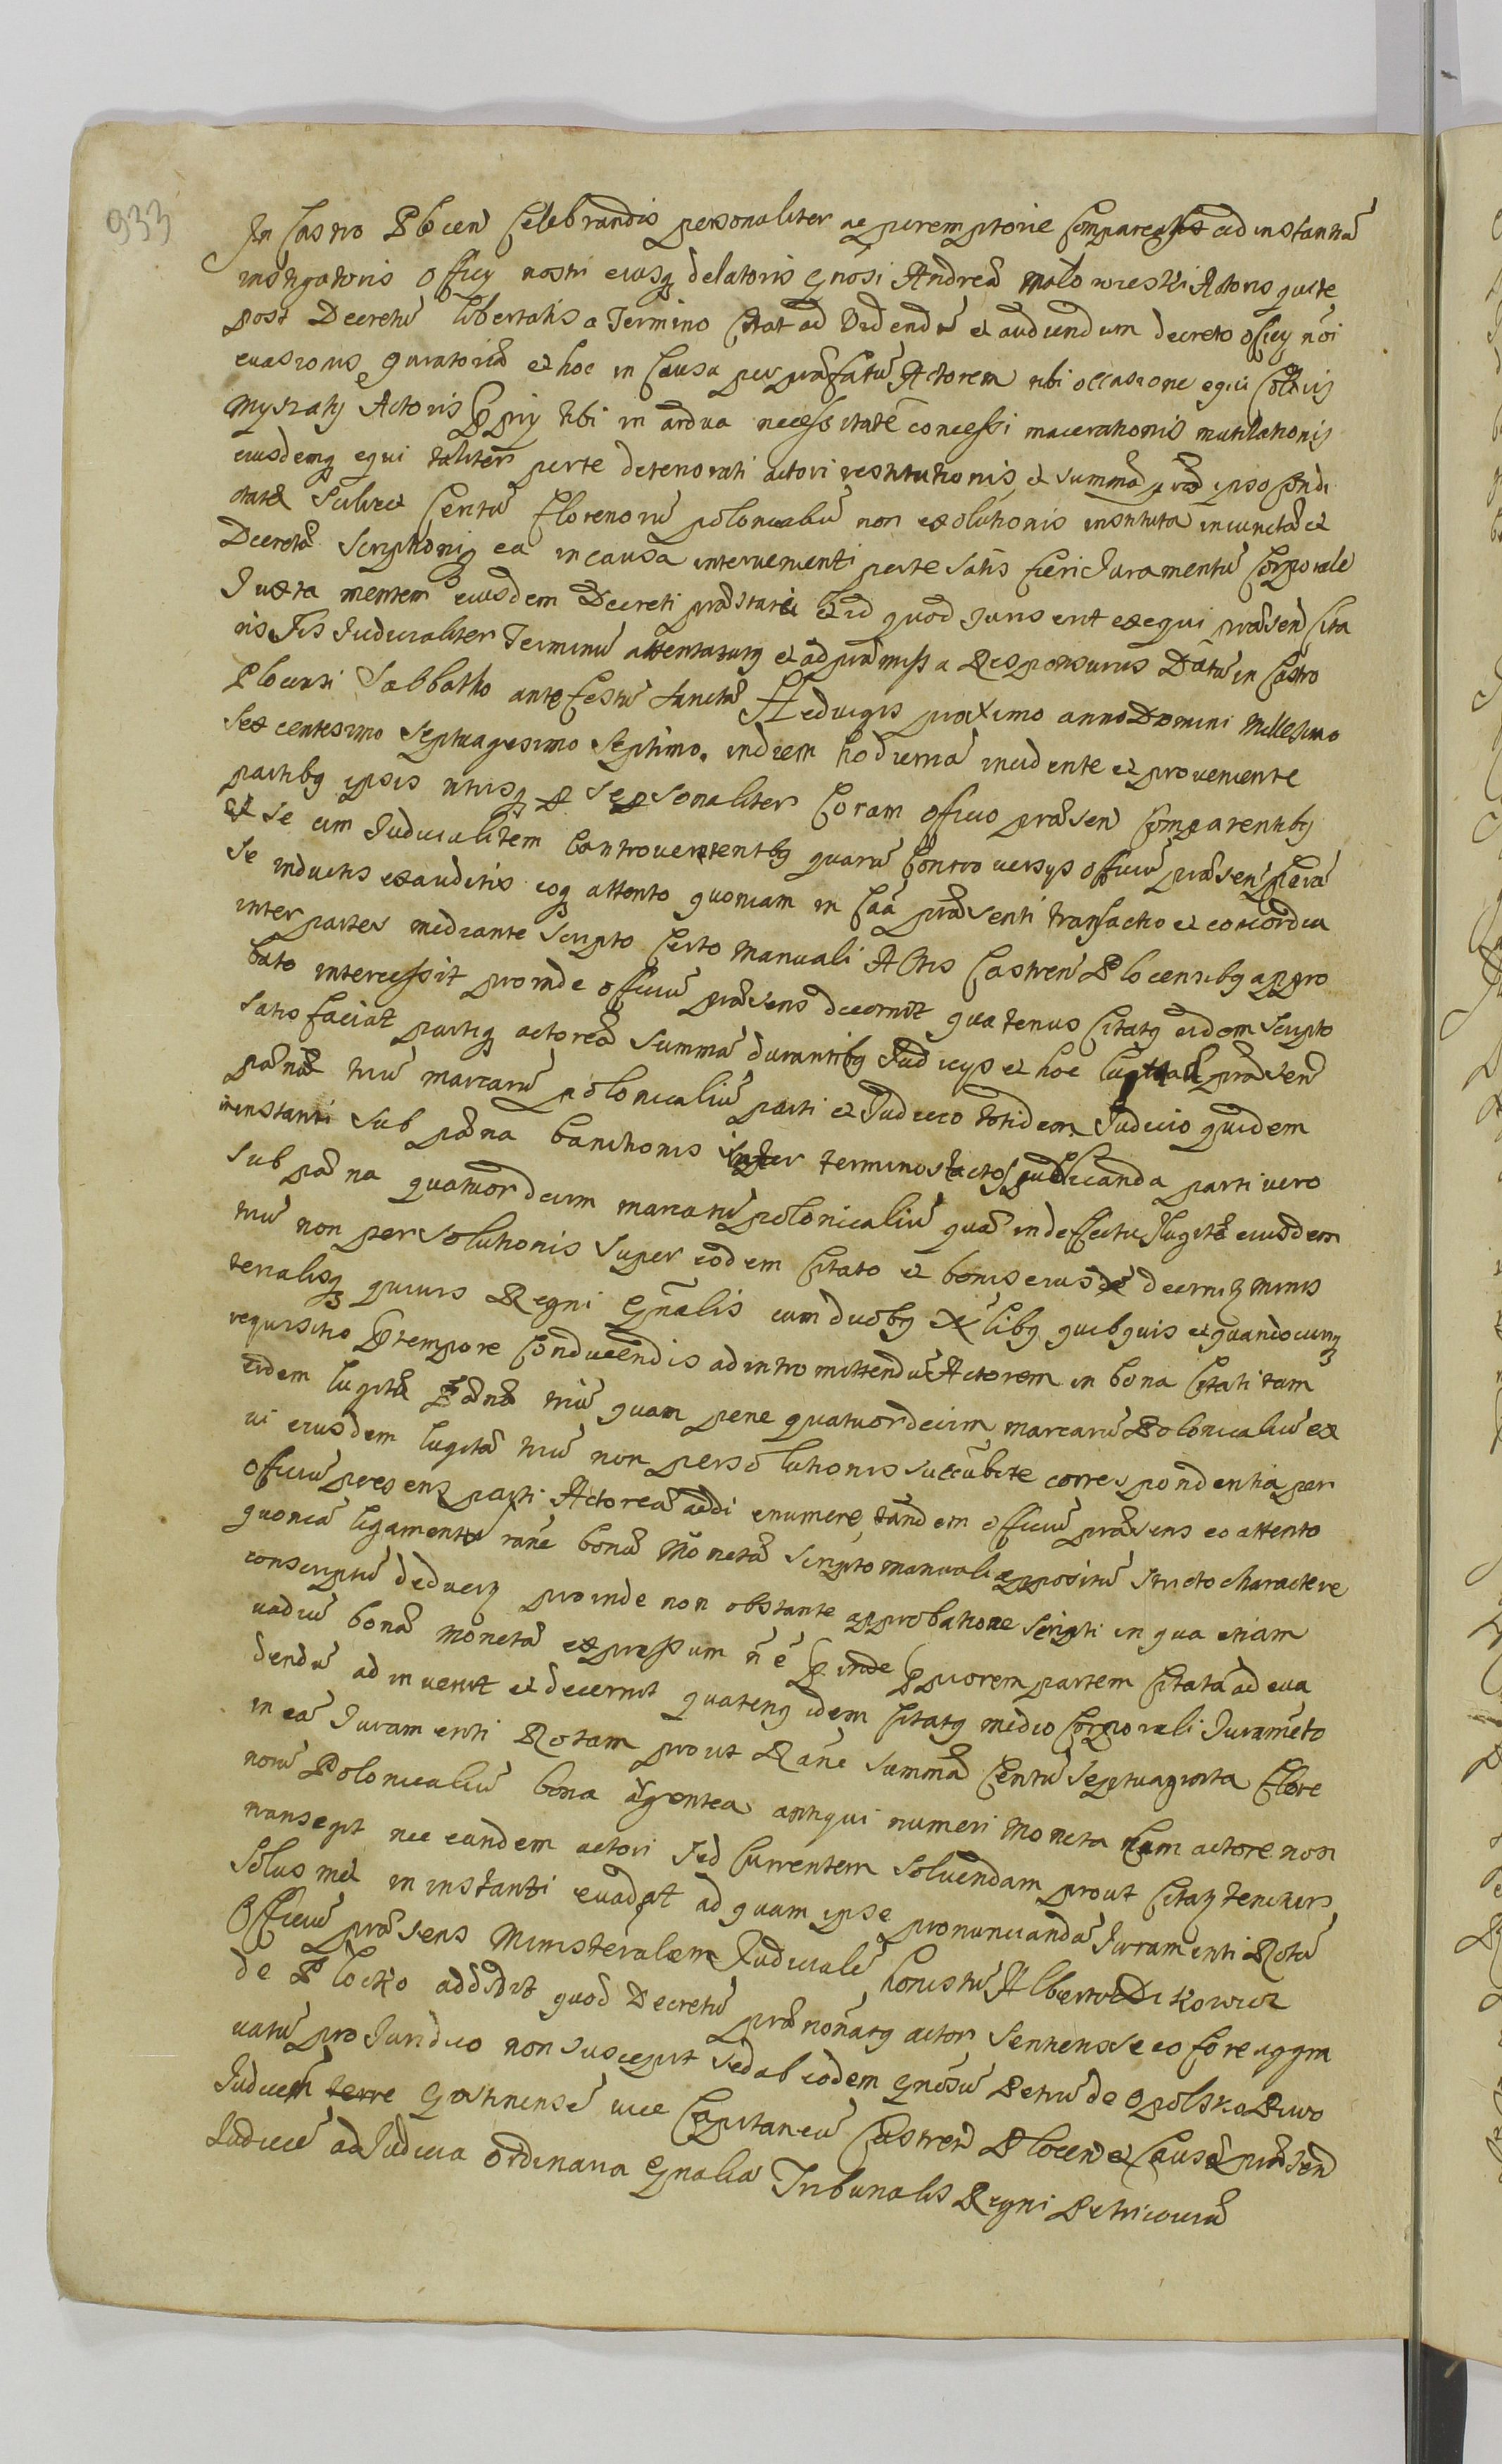 933
In Castro Plocen Celebrandis personaliter ac peremptorie compareas ad instantiã
instigatoris Officy nostri eiusq delatoris Gnosi Andreæ Malowieski Actoris qui te
post Decretũ libertatis a Termino Citat ad Videndũ et audiendum decreto officy nr̃i
evasionis juratoriæ et hoc in Causa per præfatũ Actorem tibi occasione equi coloris
Myszaty Actoris Pprij tibi in ardua necessitatẽ concessi macerationis mutilationis
eiusdemq equi taliter per te deteriorati actori restitutionis et summæ pro ipso
Scilicet Centũ Florenorũ polonicaliũ non exolutionis instituta
Decretæ Scriptoniq ea in causa intervenienti per te satis fieri Iuramentũ Corporale
Iuxta mentem eiusdem Decreti præstari et id quod Iuris erit exequi præsen Cita
ris Tis Iudicialiter Terminũ attentaturg et ad præmissa Responsurus Datũ in Castro
Plocensi Sabbatho ante Festũ Sanctæ Hedvigis proximo anno Domini Millesimo
Sex centesimo Septuagesimo Septimo. in diem hodiernã incidente et proveniente
partibg ipsis utrisq p se psonaliter Coram officio præsen Comparentibg
et se cum Iudicialitem Controvertentibg quarũ Controversys officiũ præsen
se inductis exauditis eoq attento quoniam in Cãa præsenti transactio et concordia
inter partes mediante Scripto Certo Manuali Actis Castren Plocensibg appro
bato intercessit proinde officiũ præsens decernit quatenus Citatg eidem scripto
satisfaciat partiq actoreæ summã durantibg Iudicys et hoc luitta præsen
pænæ triũ marcarũ polonicaliũ parti et Iudicio totidem Iudicio quidem
in instanti sub pæna banitionis inter terminos tactos publicanda parti vero
sub pæna quatuordecim marcarũ polonicaliũ quã in defectu lugitæ eiusdem
triũ non persolutionis super eodem Citato et bonis eius decernit minis
terialisq quiuis Regni Gñalis cum duobg Nlibg quibquis et quandocunq
requisitio Ptempore Conducendis ad intromittendũ Actorem in bona Citati tam
eidem lugitæ Pænæ triũ quam pene quatuordecim marcarũ Polonicaliũ ex
vi eiusdem lugitæ triũ non persolutionis succubite correspondentia per
officiũ presens parti Actoreæ addi enumere, tandem officiũ præsens eo attento
quoniã ligamentũ rãne bonæ Monetæ scripto manuali appositũ stricto charactere
conscriptũ deducig proinde non obstante approbatione scripti in qua etiam
vadiũ bonæ Monetæ expressum ñ ẽ Pinde Ppriorem partem Citatã ad eva
dendũ ad invenit et decernit quateng idem Citatg medio Corporali Iuramẽto
in eã Iuramenti Rotam prout Rãne summæ Centũ Septuaginta Flore
norũ Polonicaliũ bona argentea antiqui numeri Moneta cum actore non
transegit nec eandem actori sed Currentem solvendam prout Citatg tenebitur
solus met in instanti evadat ad quam ipse pronunciandã Iuramenti Rotã
Officiũ præsens Ministerialem Iudicialẽ honestũ Albertũ Dikowicz
de Plocko addidit quod Decretũ prænoñatg actor sentens se eo fore aggra
vatũ pro Iuridico non suscepit sed ab eodem Gnosũ Petrũ de Opolsko
Iudicem terre Gostinensẽ vice Capitaneũ Castren Plocen et Causæ præsen
Iudicẽ ad Iudicia Ordinaria Gnalia Tribunalis Regni Petricoviæ